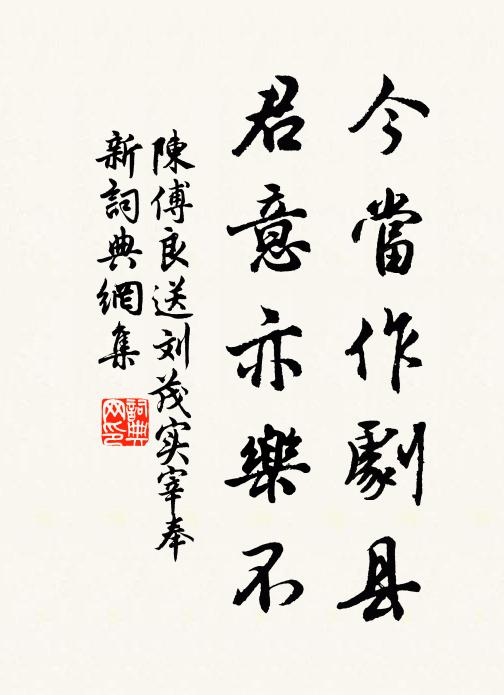 今當作劇县
君意亦樂不
陳傅良送刘茂实宰奉
新詞典網集
詞典
网印